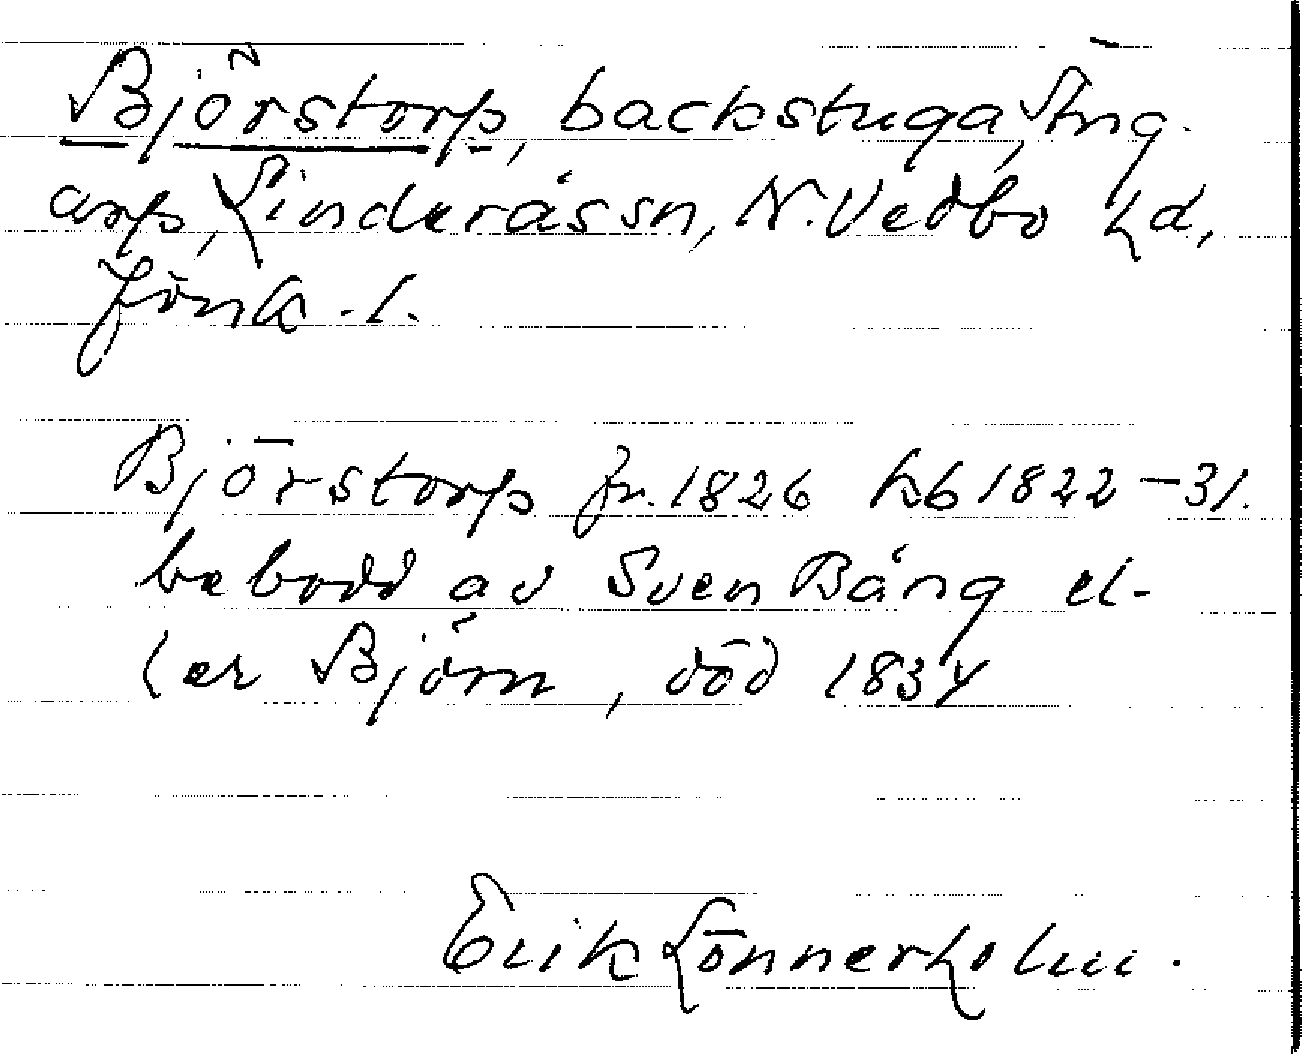 Björstorp, backstuga, Äng-
arp, Linderås sn, N. Vedbo hd,
Jönk. l.
Björstorp fr. 1826 hb 1822-31.
bebodd av Sven Bång el-
ler Björn, död 1834
Erik Lönnerholm.